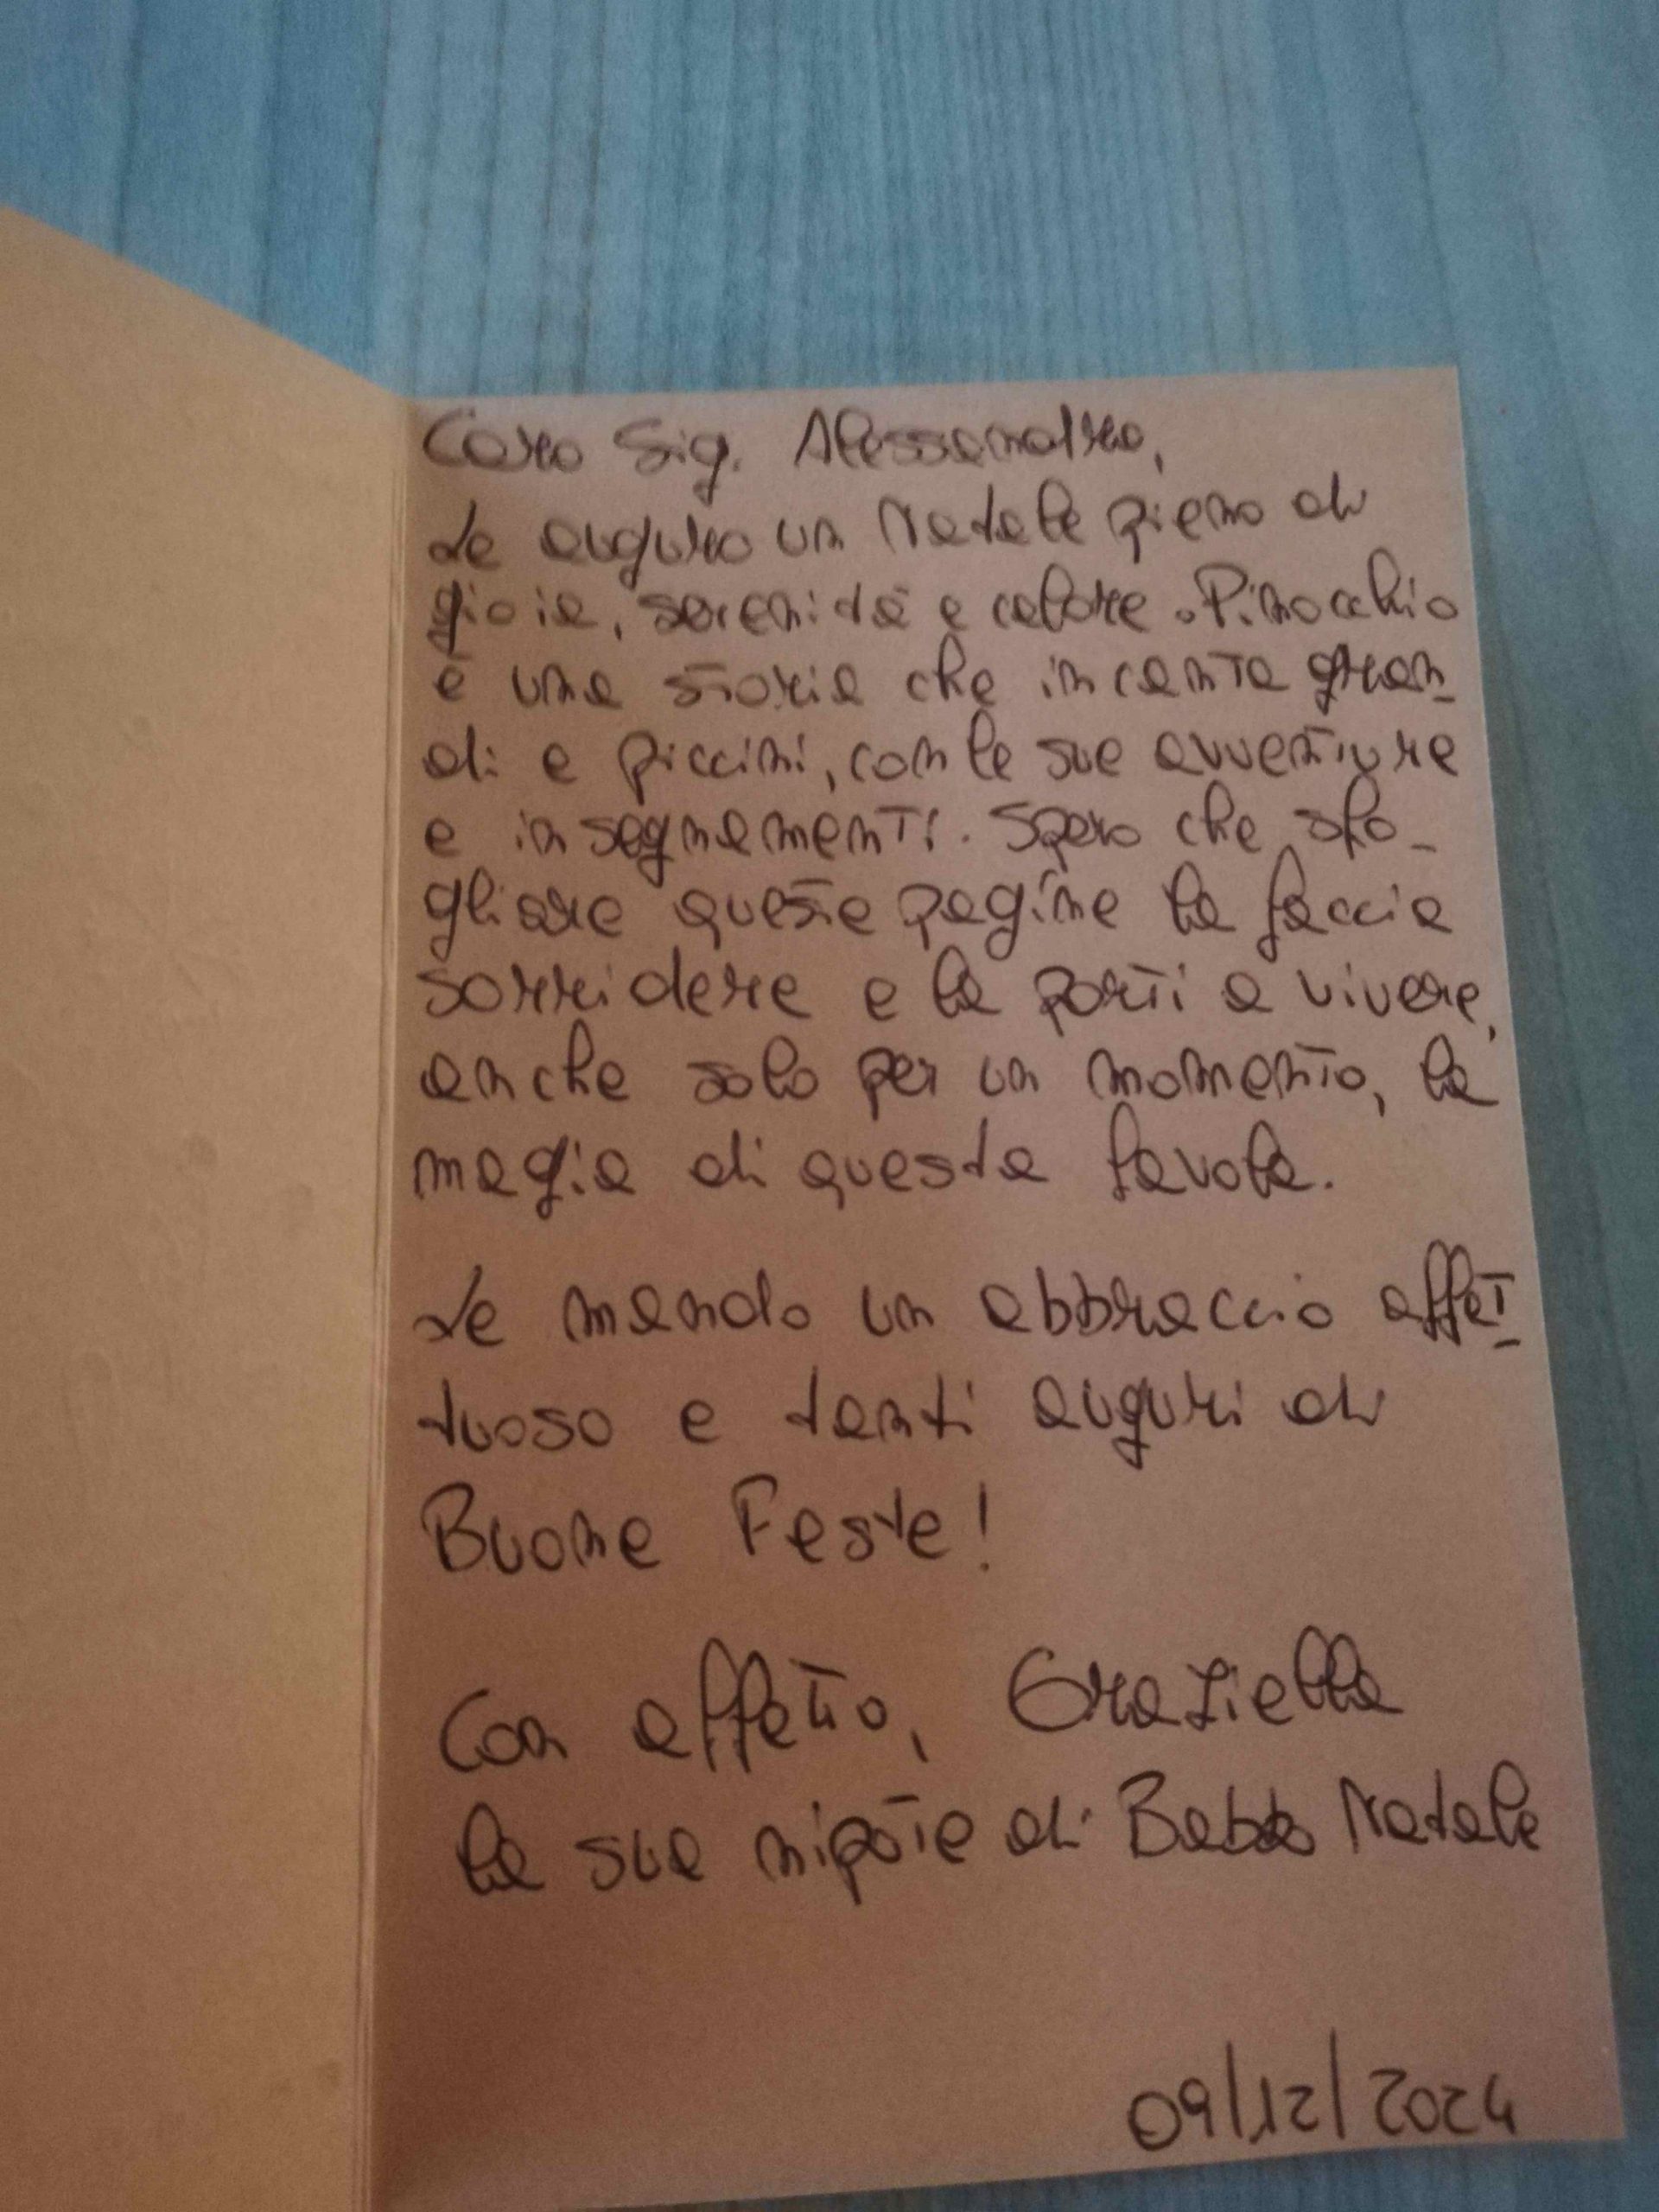 Caro Sig. Alessandro,
Le auguro un Natale pieno di
gioia, serenità e calore. Pinocchio
è una storia che incanta gran-
di e piccini, con le sue avventure
e insegnamenti. Spero che sfo-
gliare queste pagine la faccia
sorridere e la porti a vivere,
anche solo per un momento, la
magia di questa favola.
Le mando un abbraccio affet-
tuoso e tanti auguri di
Buone Feste!
Con affetto, Graziella
la sua nipote di Babbo Natale
09/12/2024